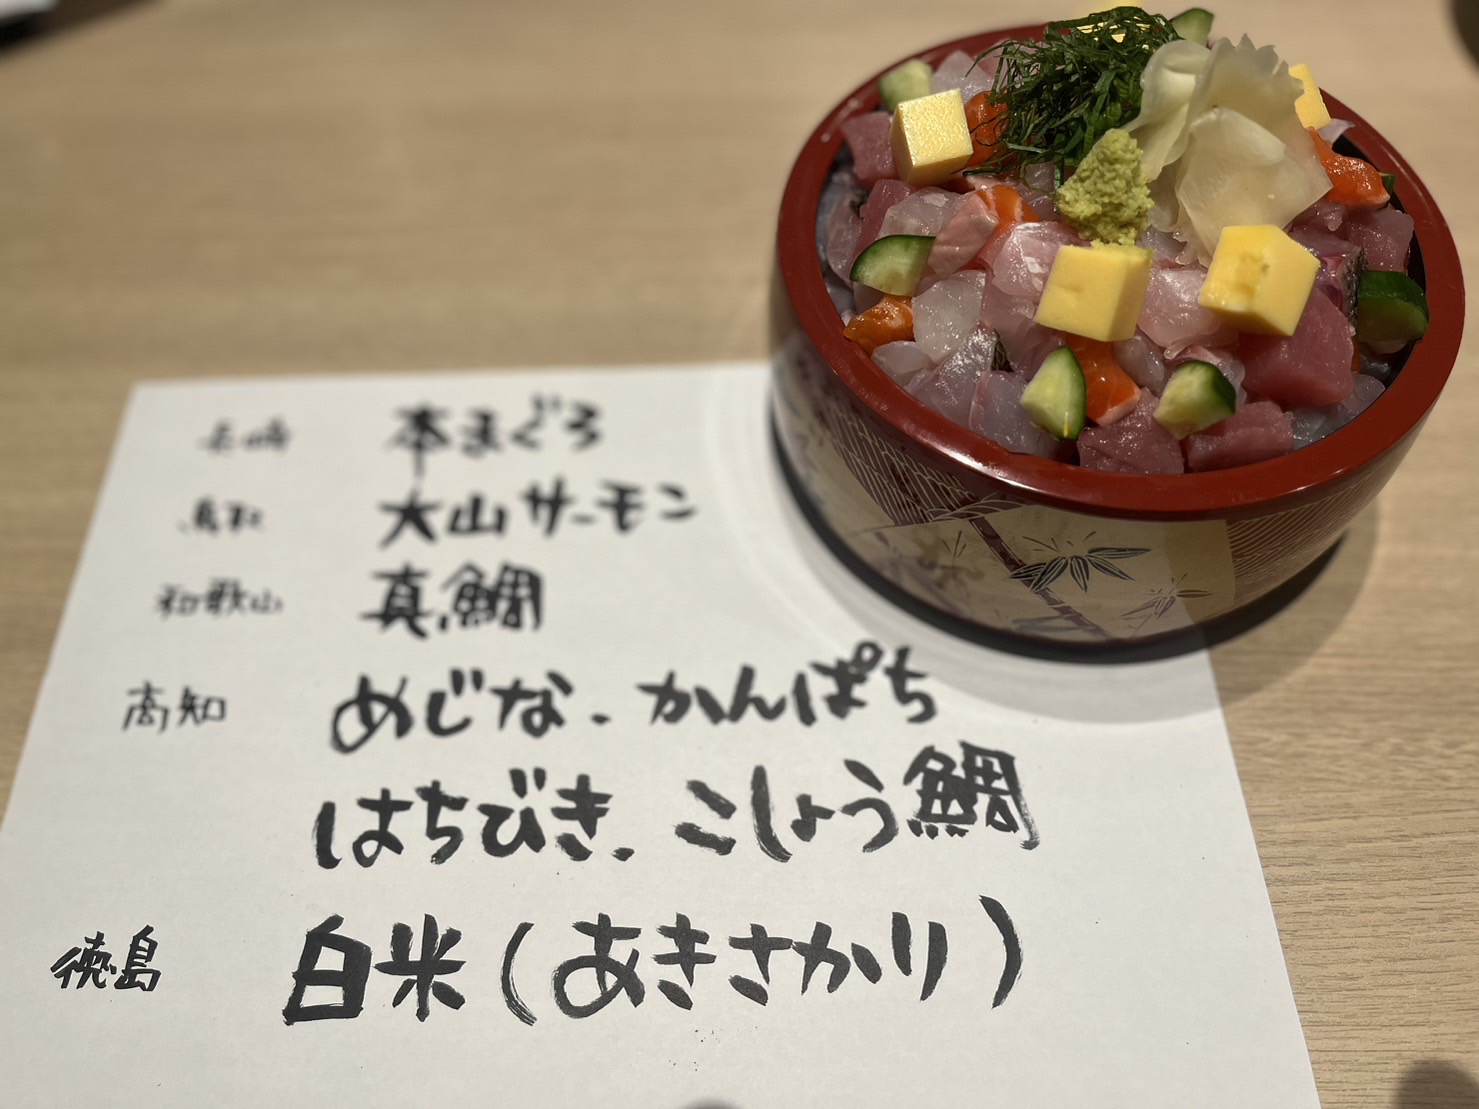 長崎 本まぐろ
鳥取 大山サーモン
和歌山 真鯛
高知 めじな、かんぱち
はちびき、こしょう鯛
徳島 白米(あきさかり)